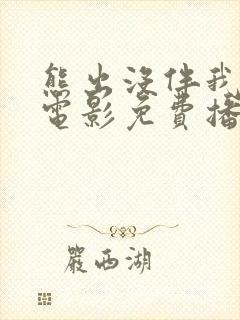 熊出没伴我
電影免費播
嚴西湖